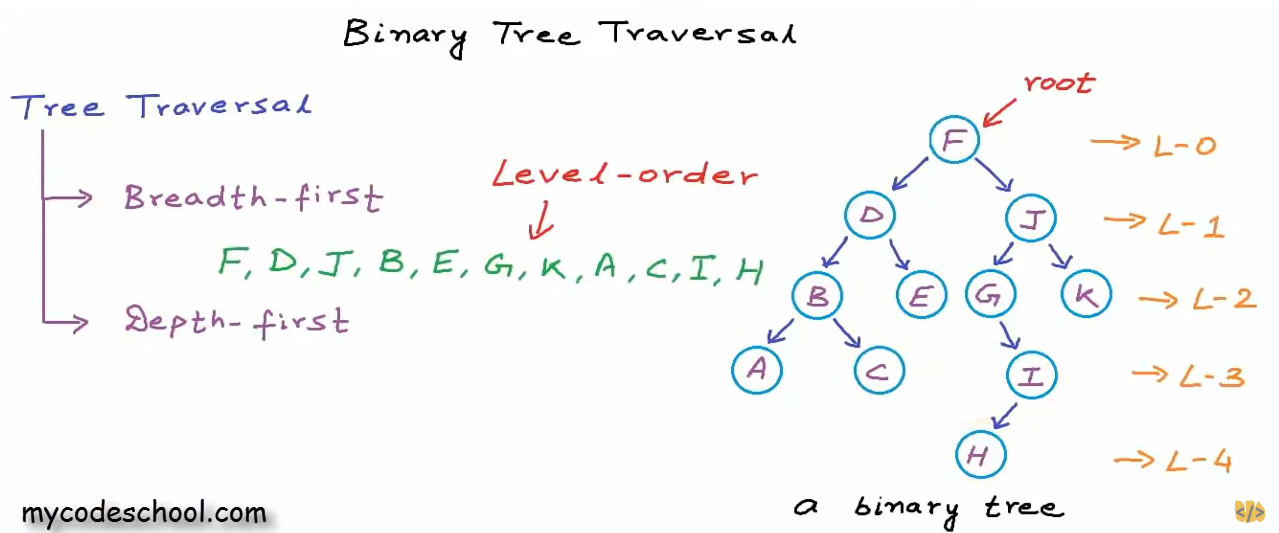 Binary Tree Traversal
Tree Traversal
Breadth-first
Level-order
F, D, J, B, E, G, K, A, C, I, H
Depth-first
root
F
L-0
D
J
L-1
B
E
G
K
L-2
A
C
I
L-3
H
L-4
a binary tree
mycodeschool.com
</>